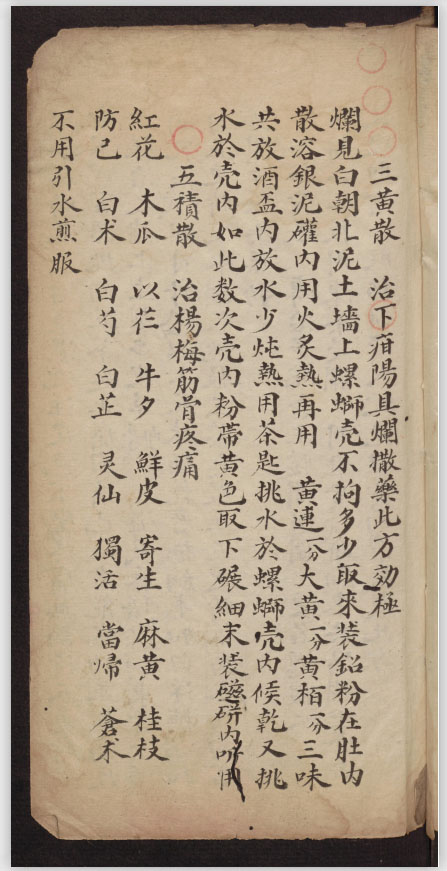 三黃散 治下疳陽具爛撒藥此方効極
爛見白朝北泥土墻上螺螄壳不拘多少取來裝鉛粉在肚內
散溶銀泥礶內用火炙熱再用 黃連一分大黃一分黃栢一分三味
共放酒盃內放水少炖熱用茶匙挑水於螺螄壳內候乾又挑
水於壳內如此数次壳內粉帶黃色取下碾細末裝磁砰內听用
五積散 治楊梅筋骨疼痛
紅花 木瓜 以苡 牛夕 鮮皮 寄生 麻黃 桂枝
防已 白朮 白芍 白芷 灵仙 獨活 當歸 蒼朮
不用引水煎服